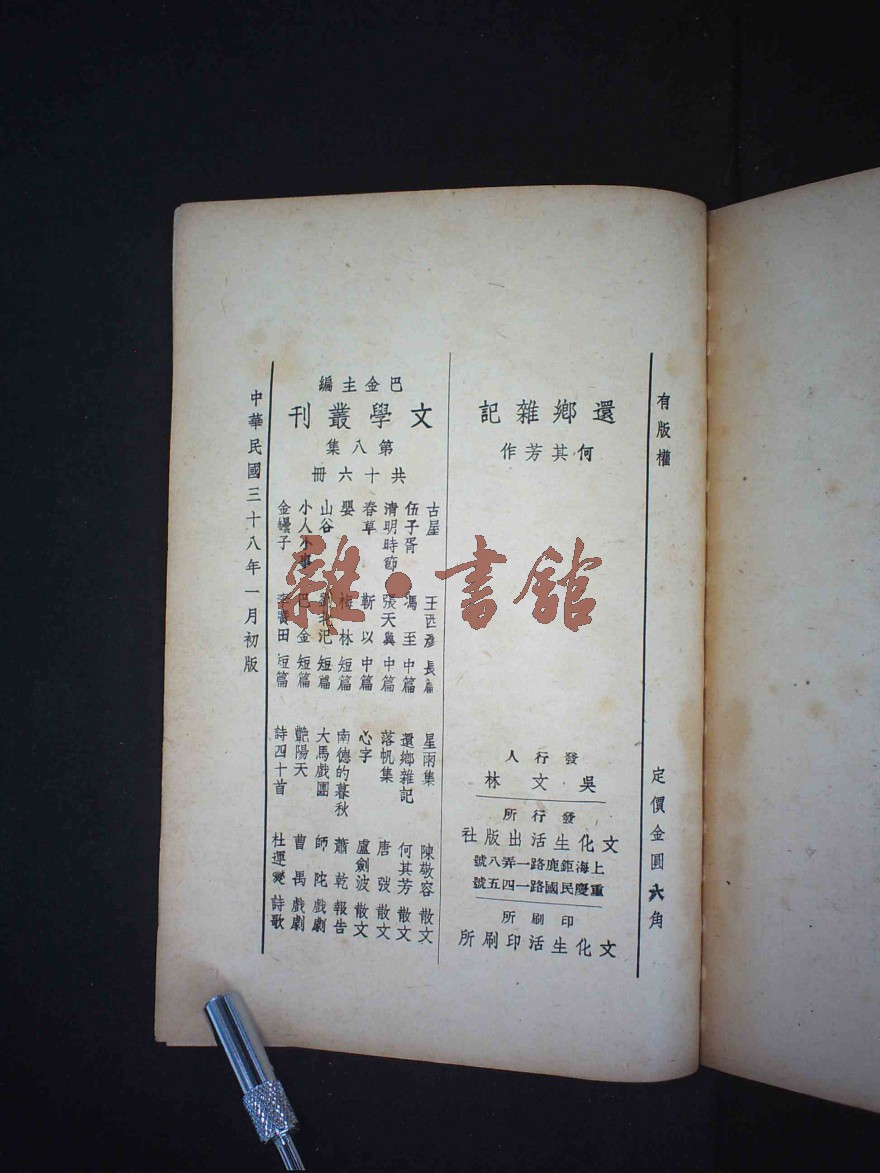 有版權
定價金圓六角
還鄉雜記
何其芳作
發行人
吳文林
發行所
文化生活出版社
上海鉅鹿路一弄八號
重慶民國路一四五號
印刷所
文化生活印刷所
巴金主編
文學叢刊
第八集
共十六冊
古屋 王西彥 長篇
伍子胥 馮至 中篇
清明時節 張天翼 中篇
春草 靳以 中篇
嬰 梅林 短篇
山谷 劉北汜 短篇
小人小事 巴金 短篇
金罎子 李廣田 短篇
星雨集 陳敬容 散文
還鄉雜記 何其芳 散文
落帆集 唐弢 散文
心字 盧劍波 散文
南德的暮秋 蕭乾 報告
大馬戲團 師陀 戲劇
艷陽天 曹禺 戲劇
詩四十首 杜運燮 詩歌
中華民國三十八年一月初版
雜·書館